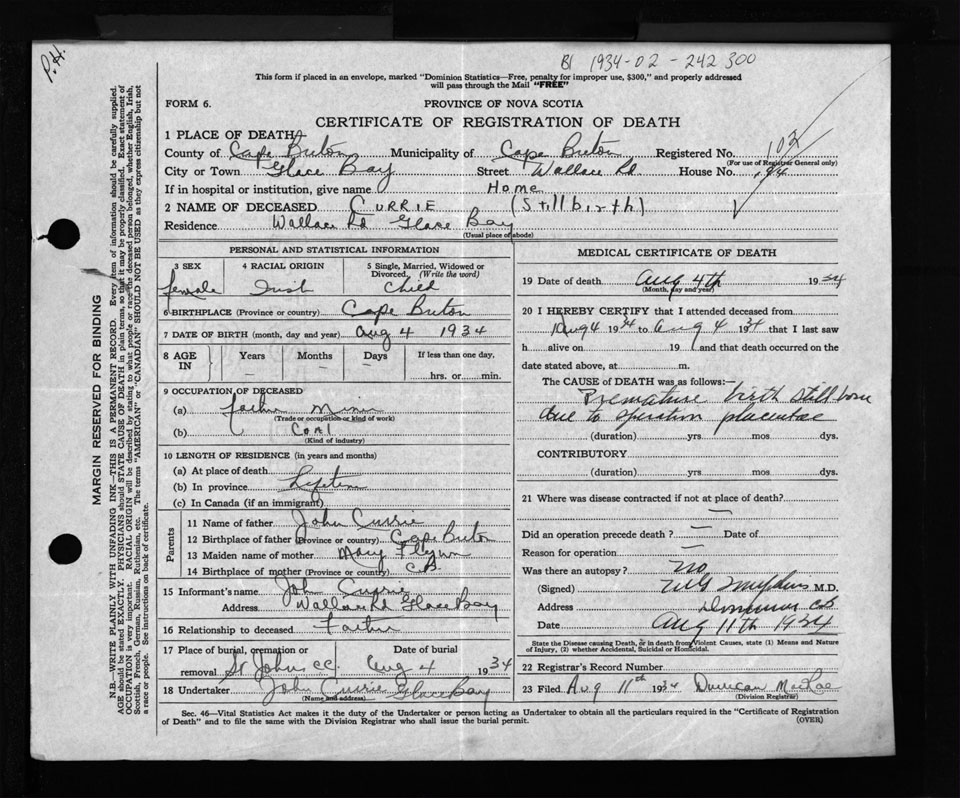 P.H.
B1 1934-02-242300
This form if placed in an envelope, marked "Dominion Statistics—Free, penalty for improper use, $300," and properly addressed
will pass through the Mail "FREE"
FORM 6.
PROVINCE OF NOVA SCOTIA
CERTIFICATE OF REGISTRATION OF DEATH
1 PLACE OF DEATH
County of Cape Breton Municipality of Cape Breton Registered No. 102
(For use of Registrar General only)
City or Town Glace Bay Street Wallace Rd House No. 194
If in hospital or institution, give name Home
2 NAME OF DECEASED CURRIE (Stillbirth)
Residence Wallace Rd Glace Bay
(Usual place of abode)
PERSONAL AND STATISTICAL INFORMATION
3 SEX 4 RACIAL ORIGIN 5 Single, Married, Widowed or
Divorced. (Write the word)
female Irish Child
6 BIRTHPLACE (Province or country) Cape Breton
7 DATE OF BIRTH (month, day and year) Aug 4 1934
8 AGE IN Years Months Days If less than one day,
— — — hrs. or min.
9 OCCUPATION OF DECEASED
(a) father Miner
(Trade or occupation or kind of work)
(b) Coal
(Kind of industry)
10 LENGTH OF RESIDENCE (in years and months)
(a) At place of death
(b) In province Lifetime
(c) In Canada (if an immigrant)
Parents
11 Name of father John Currie
12 Birthplace of father (Province or country) Cape Breton
13 Maiden name of mother Mary Flynn
14 Birthplace of mother (Province or country) C.B.
15 Informant's name John Currie
Address Wallace Rd Glace Bay
16 Relationship to deceased Father
17 Place of burial, cremation or Date of burial
removal St Johns CC. Aug 4 1934
18 Undertaker John Currie Glace Bay
(Name and address)
MEDICAL CERTIFICATE OF DEATH
19 Date of death Aug 4th 1934
(Month, day and year)
20 I HEREBY CERTIFY that I attended deceased from
Aug 4 1934 to Aug 4 1934 that I last saw
h alive on 19 and that death occurred on the
date stated above, at m.
The CAUSE of DEATH was as follows:
Premature birth stillborn
due to placentae
(duration) yrs mos dys.
CONTRIBUTORY
(duration) yrs mos dys.
21 Where was disease contracted if not at place of death?
—
Did an operation precede death? — Date of
Reason for operation —
Was there an autopsy? No
(Signed) M.D.
Address Dominion CB
Date Aug 11th 1934
State the Disease causing Death, or in death from Violent Causes, state (1) Means and Nature
of Injury, (2) whether Accidental, Suicidal or Homicidal.
22 Registrar's Record Number
23 Filed Aug 11th 1934 Duncan MacRae
(Division Registrar)
Sec. 46—Vital Statistics Act makes it duty of the Undertaker or person acting as Undertaker to obtain all the particulars required in the "Certificate of Registration
of Death" and to file the same with the Division Registrar who shall issue the burial permit.
(OVER)
MARGIN RESERVED FOR BINDING
N.B.—WRITE PLAINLY WITH UNFADING INK—THIS IS A PERMANENT RECORD. Every item of information should be carefully supplied.
AGE should be stated EXACTLY. PHYSICIANS should STATE CAUSE OF DEATH in plain terms, so that it may be properly classified. Exact statement of
OCCUPATION is very important. RACIAL ORIGIN will be described by stating to what people or race the deceased person belonged, whether English, Irish,
Scottish, French, German, Russian, Ruthenian, etc. The terms "AMERICAN" or "CANADIAN" SHOULD NOT BE USED as they express citizenship but not
a race or people. See instructions on back of certificate.